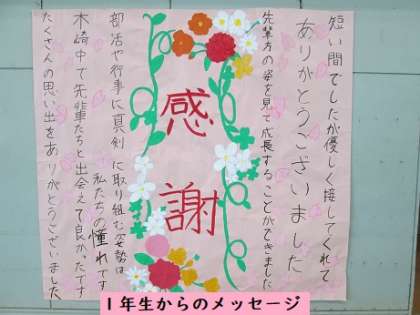 短い間でしたが優しく接してくれて
ありがとうございました
先輩方の姿を見て成長することができました
感謝
部活や行事に真剣に取り組む姿勢は
私たちの憧れです
木崎中で先輩たちと出会えて良かったです
たくさんの思い出をありがとうございました
1年生からのメッセージ